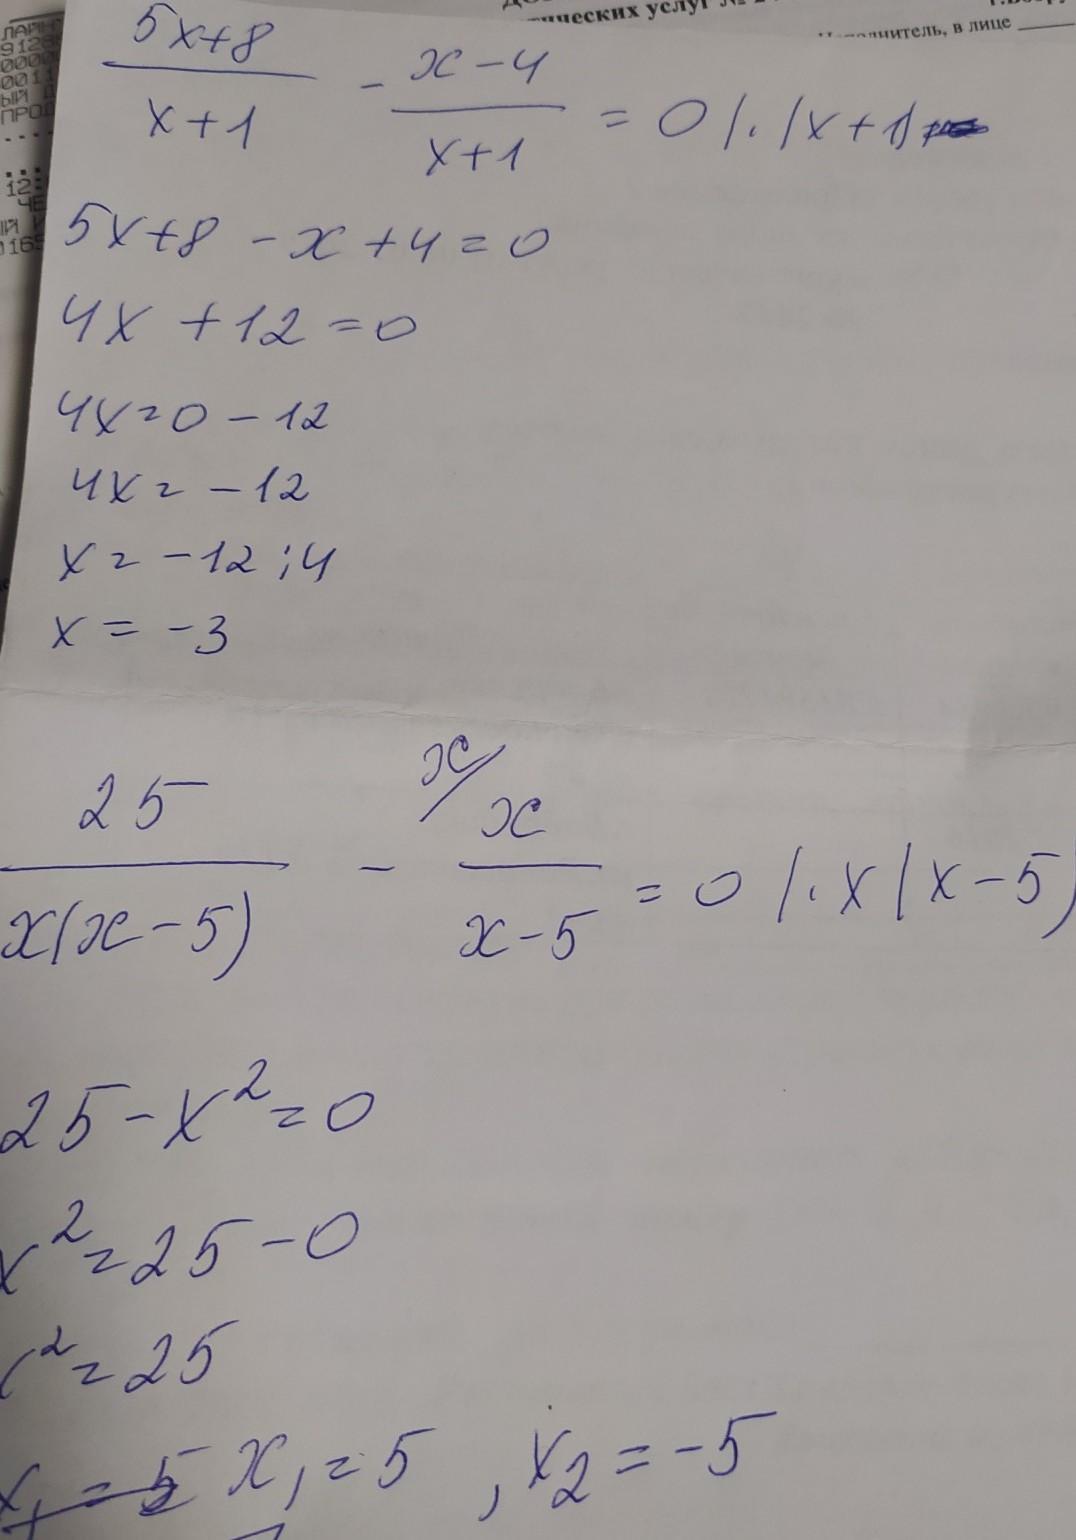 ческих услуг №
исполнитель, в лице
ЛАЙН
9128
0000
0011
ЫЙ Д
ПРОД
12:
ЧЕ
0165
5x+8 / x+1 - x-4 / x+1 = 0 /·(x+1)
5x+8 -x+4=0
4x +12=0
4x=0-12
4x=-12
x=-12:4
x=-3
25 / x(x-5) - x/ x / x-5 = 0 /·x(x-5)
25-x²=0
x²=25-0
x²=25
x₁=5 x₁=5, x₂=-5